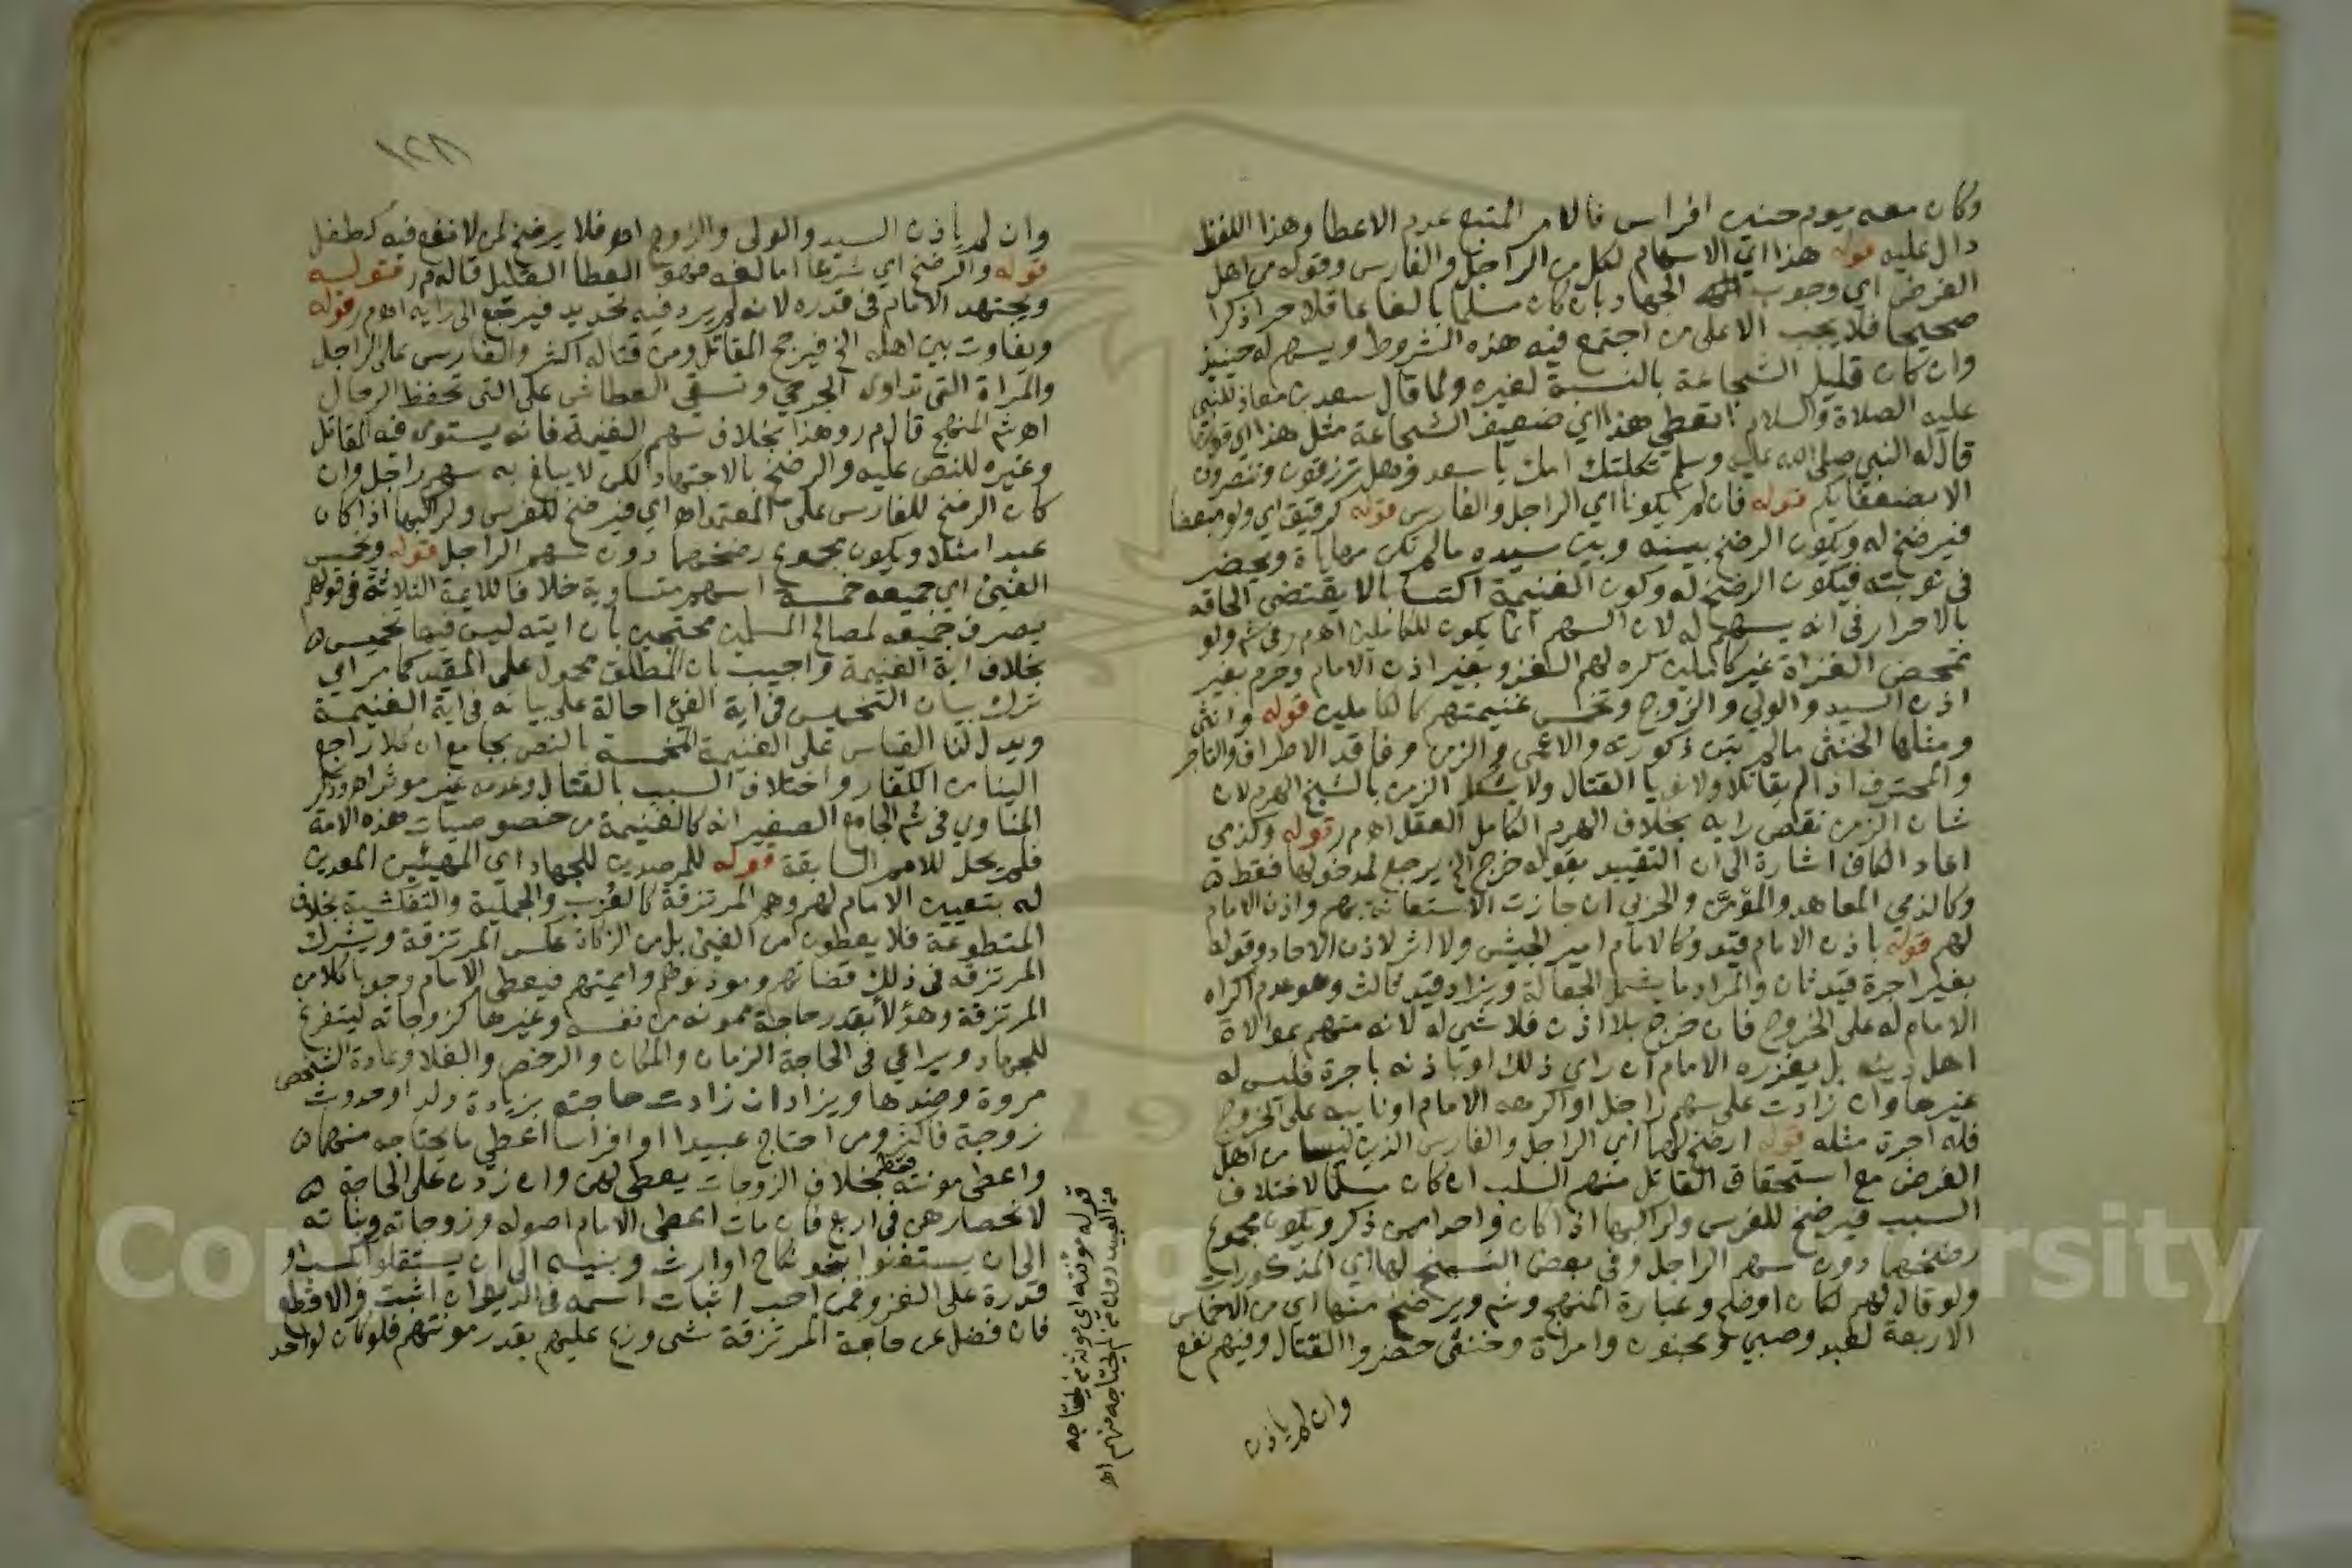 وكان معه يوم حنين افراس فالامر المتبع عدم الاعطا وهذا اللفظ
دال عليه قوله هذا اي الاسهام لكل من الراجل والفارس وقوله من اهل
الفرض اي وجوب الجهاد بان كان مسلما بالغا عاقلا حرا ذكرا
صحيحا فلا يجب الا على من اجتمع فيه هذه الشروط ويسهم له حينيذ
وان كان قليل الشجاعة بالنسبة لغيره ولما قال سعد بن معاذ للنبي
عليه الصلاة والسلام اتعطي هذا اي ضعيف الشجاعة مثل هذا اي قويها
قال له النبي صلى الله عليه وسلم ثكلتك امك يا سعد وهل ترزقون وتنصرون
الا بضعفايكم قوله فان لم يكونا اي الراجل والفارس قوله كرقيق اي ولو مبعضا
فيرضخ له ويكون الرضخ بينه وبين سيده ما لم تكن مهاياة ويحضر
في نوبته فيكون الرضخ له وكون الغنيمة اكتسابا لا يقتضي الحاقه
بالاحرار في انه يسهم له لان السهم انما يكون للكاملين اه م ر في شم ولو
تمحض الغزاة غير كاملين كره لهم الغزو بغير اذن الامام وحرم بغير
اذن السيد والولي والزوج وتخمس غنيمتهم كالكاملين قوله وانثى
ومثلها الخنثى ما لم تبن ذكورته والاعمى والزمن وفاقد الاطراف والتاجر
والمحترف اذا لم يقاتلا ولا نويا القتال ولا يشكل الزمن بالشيخ الهرم لان
شان الزمن نقص رايه بخلاف الهرم الكامل العقل اه م ر قوله وكذمي
اعاد الكاف اشارة الى ان التقييد بقوله خرج الخ يرجع لمدخولها فقط
وكالذمي المعاهد والمؤمن والحربي ان جازت الاستعانة بهم واذن الامام
لهم قوله باذن الامام قيد وكالامام امير الجيش ولا اثر لاذن الاحاد وقوله
بغير اجرة قيد ثان والمراد ما يشمل الجعالة ويزاد قيد ثالث وهو عدم اكراه
الامام له على الخروج فان خرج بلا اذن فلا شي له لانه متهم بموالاة
اهل دينه بل يعزره الامام ان راى ذلك او باذنه باجرة فليس له
غيرها وان زادت على سهم راجل او اكرهه الامام او نايبه على الخروج
فله اجرة مثله قوله ارضخ لهما اي الراجل والفارس الذين ليسا من اهل
الفرض مع استحقاق القاتل منهم السلب ان كان مسلما لاختلاف
السبب فيرضخ للفرس ولراكبها اذا كان واحدا ممن ذكر ويكون مجموع
رضخهما دون سهم الراجل وفي بعض النسخ لها اي المذكورات
ولو قال لهم لكان اوضح وعبارة المنهج وشم ويرضخ منها اي من الاخماس
الاربعة لعبد وصبي ومجنون وامراة وخنثى حضروا القتال وفيهم نفع
وان لم ياذن
١٢٨
وان لم ياذن السيد والولي والزوج اه فلا يرضخ لمن لا نفع فيه كطفل
قوله والرضخ اي شرعا اما لغة فهو العطا القليل قاله م ر قوله
ويجتهد الامام في قدره لانه لم يرد فيه تحديد فيرجع الى رايه اه م ر قوله
ويفاوت بين اهله الخ فيرجح المقاتل ومن قتاله اكثر والفارس على الراجل
والمراة التي تداوي الجرحي وتسقي العطاشى على التي تحفظ الرحال
اه شم المنهج قال م ر وهذا بخلاف سهم الغنيمة فانه يستوي فيه المقاتل
وغيره للنص عليه والرضخ بالاجتهاد لكن لا يبلغ به سهم راجل وان
كان الرضخ للفارس على المعتمد اه اي فيرضخ للفرس ولراكبها اذا كان
عبدا مثلا ويكون مجموع رضخهما دون سهم الراجل قوله ويخمس
الفيئ اي جميعه خمسة اسهم متساوية خلافا للايمة الثلاثة في قولهم
يصرف جميعه لمصالح المسلمين محتجين بان ايته ليس فيها تخميس
بخلاف اية الغنيمة واجيب بان المطلق محمول على المقيد كما مر اي
ترك بيان التخميس في اية الفيئ احالة على بيانه في اية الغنيمة
ويدل لنا القياس على الغنيمة المخمسة بالنص بجامع ان كلا راجع
الينا من الكفار واختلاف السبب بالقتال وعدمه غير موثر اه وذكر
المناوي في شم الجامع الصغير انه كالغنيمة من خصوصيات هذه الامة
فلم يحل للامم السابقة قوله للمرصدين للجهاد اي المهيئين المعدين
له بتعيين الامام لهم وهم المرتزقة كالعزب والجملية والتفكشية بخلاف
المتطوعة فلا يعطون من الفيئ بل من الزكاة عكس المرتزقة ويشرك
المرتزقه في ذلك قضاتهم وموذنوهم وايمتهم فيعطي الامام وجوبا كلا من
المرتزقة وهؤلا بقدر حاجة ممونه من نفسه وغيرها كزوجاته ليتفرغ
للجهاد ويراعي في الحاجة الزمان والمكان والرخص والغلا وعادة الشخص
مروة وضدها ويزاد ان زادت حاجته بزيادة ولد او حدوث
زوجة فاكثر ومن احتاج عبيدا او افراسا اعطي ما يحتاجه منهما
واعطى مونته فقط بخلاف الزوجات يعطى لهن وان زدن على الحاجة
لانحصارهن في اربع فان مات اعطى الامام اصوله وزوجاته وبناته
الى ان يستغنوا بنحو نكاح او ارث وبنيه الى ان يستقلوا بكسب او
قدرة على الغزو فمن احب اثبات اسمه في الديوان اثبت والا قطع
فان فضل عن حاجة المرتزقة شي وزع عليهم بقدر مونتهم فلو كان لواحد
قوله مؤنته اي مونة من يحتاجه
من العبيد دون من لم يحتاجه منهم اه